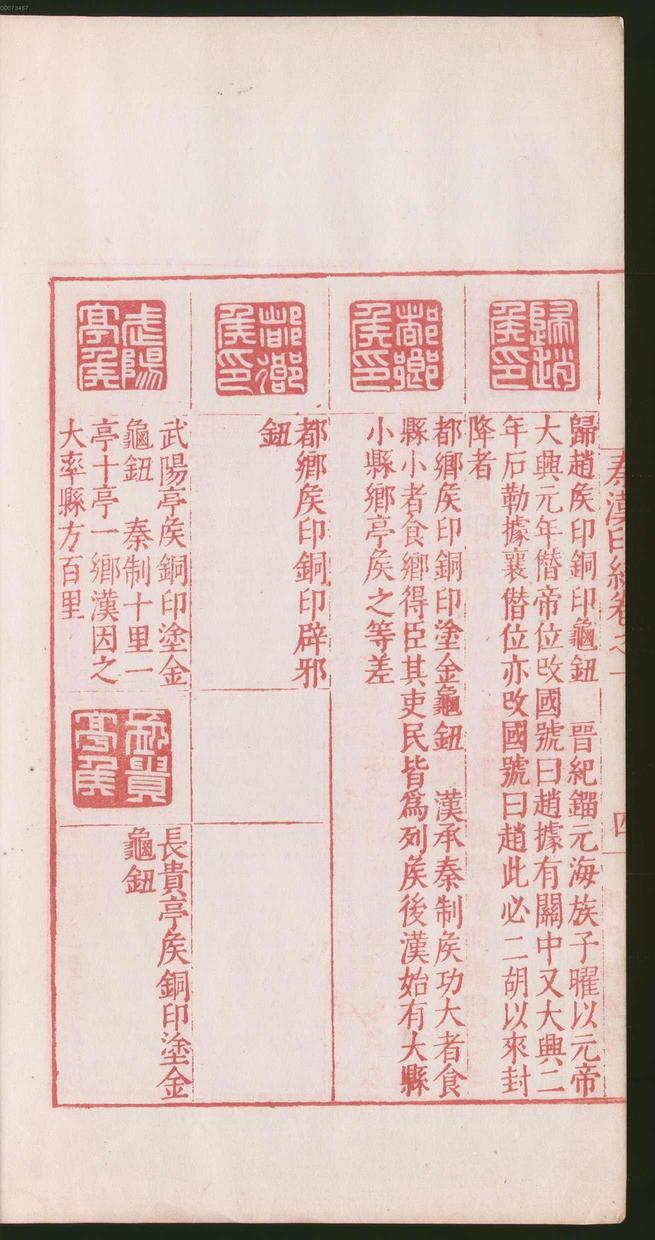 00073467
秦漢印統卷之一
四
歸趙侯印
歸趙矦印銅印龜鈕 晉紀鎦元海族子曜以元帝
大興元年僭帝位改國號曰趙據有關中又大興二
年石勒據襄僭位亦改國號曰趙此必二胡以來封
降者
都鄉侯印
都鄉矦印銅印塗金龜鈕 漢承秦制矦功大者食
縣小者食鄉得臣其吏民皆爲列矦後漢始有大縣
小縣鄉亭矦之等差
都鄉侯印
都鄉矦印銅印辟邪
鈕
武陽亭侯
武陽亭矦銅印塗金
龜鈕 秦制十里一
亭十亭一鄉漢因之
大率縣方百里
長貴亭侯
長貴亭矦銅印塗金
龜鈕